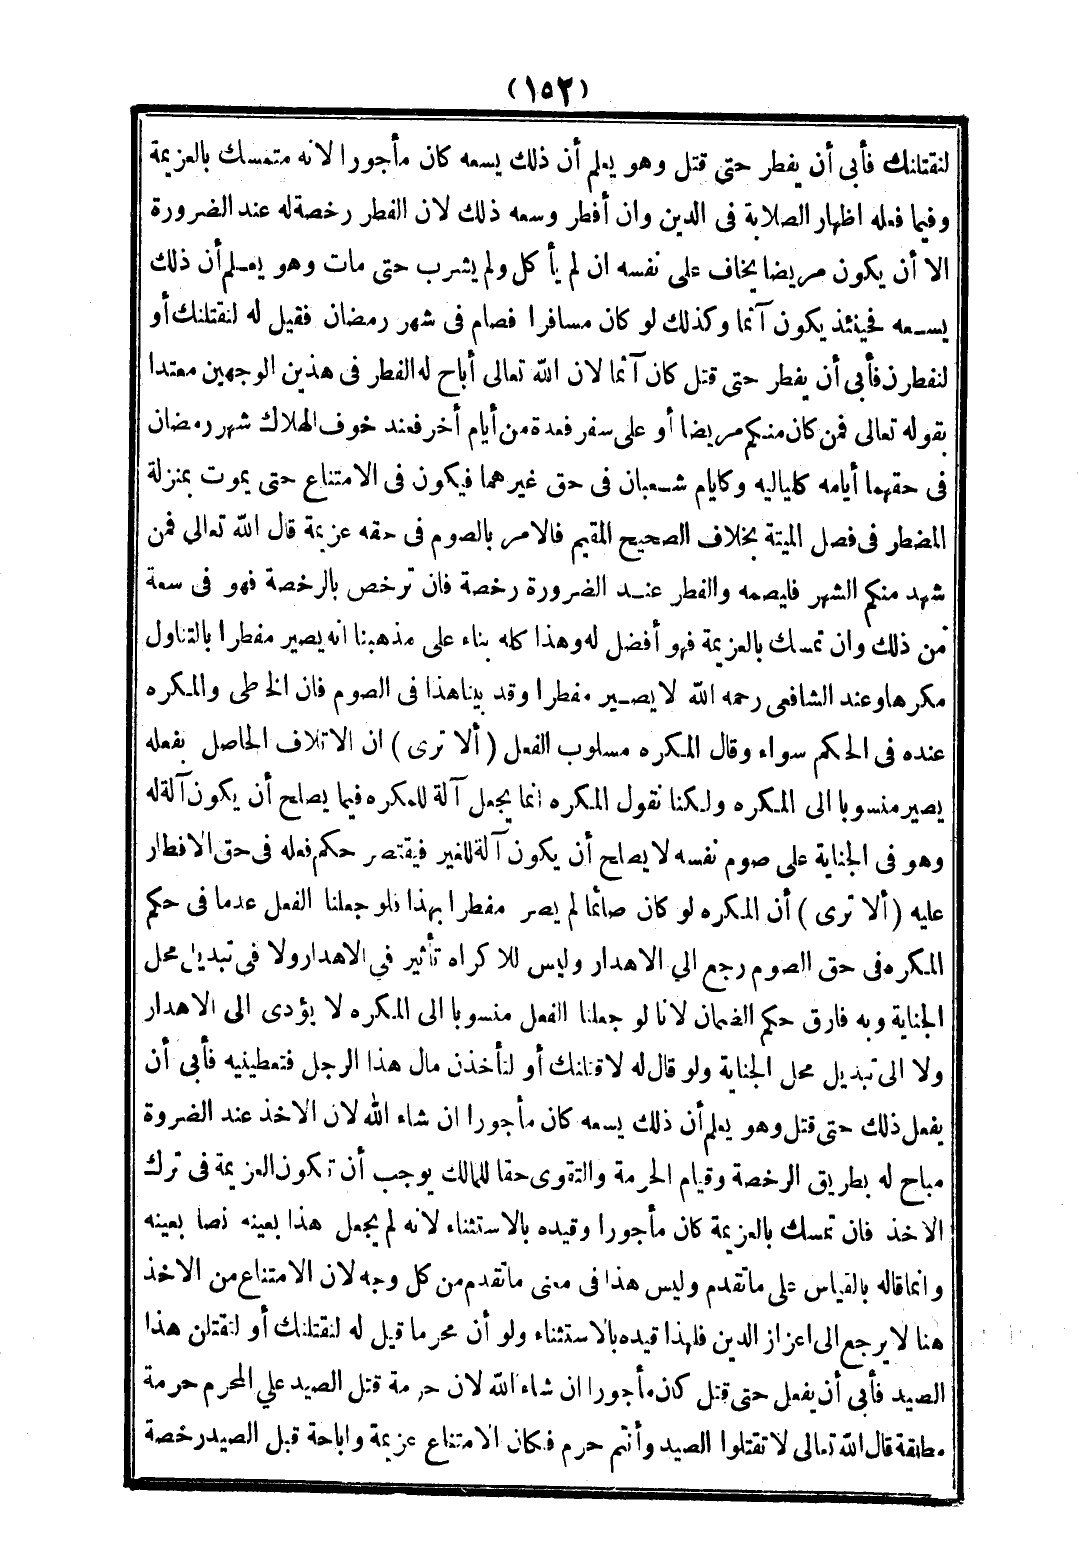 (١٥٢)
لنقتلنك فأبى أن يفطر حتى قتل وهو يعلم أن ذلك يسعه كان مأجورا لانه متمسك بالعزيمة
وفيما فعله اظهار الصلابة فى الدين وان أفطر وسعه ذلك لان الفطر رخصة له عند الضرورة
الا أن يكون مريضا يخاف على نفسه ان لم يأكل ولم يشرب حتى مات وهو يعلم أن ذلك
يسعه فحينئذ يكون آثما وكذلك لو كان مسافرا فصام فى شهر رمضان فقيل له لنقتلنك أو
لتفطرن فأبى أن يفطر حتى قتل كان آثما لان الله تعالى أباح له الفطر فى هذين الوجهين معتدا
بقوله تعالى فمن كان منكم مريضا أو على سفر فعدة من أيام أخر فعند خوف الهلاك شهر رمضان
فى حقهما أيامه كلياليه وكايام شعبان فى حق غيرهما فيكون فى الامتناع حتى يموت بمنزلة
المضطر فى فصل الميتة بخلاف الصحيح المقيم فالامر بالصوم فى حقه عزيمة قال الله تعالي فمن
شهد منكم الشهر فليصمه والفطر عند الضرورة رخصة فان ترخص بالرخصة فهو فى سعة
من ذلك وان تمسك بالعزيمة فهو أفضل له وهذا كله بناء على مذهبنا انه يصير مفطرا بالتناول
مكرها وعند الشافعى رحمه الله لا يصير مفطرا وقد بينا هذا فى الصوم فان الخاطى والمكره
عنده فى الحكم سواء وقال المكره مسلوب الفعل (ألا ترى) ان الاتلاف الحاصل بفعله
يصير منسوبا الى المكره ولكنا نقول المكره انما يجعل آلة للمكره فيما يصلح أن يكون آلة له
وهو فى الجناية على صوم نفسه لا يصلح أن يكون آلة للغير فيقتصر حكم فعله فى حق الافطار
عليه (ألا ترى) أن المكره لو كان صائما لم يصر مفطرا بهذا فلو جعلنا الفعل عدما فى حكم
المكره فى حق الصوم رجع الي الاهدار وليس للاكراه تأثير في الاهدار ولا فى تبديل محل
الجناية وبه فارق حكم الضمان لانا لو جعلنا الفعل منسوبا الى المكره لا يؤدى الى الاهدار
ولا الى تبديل محل الجناية ولو قال له لاقتلنك أو لتأخذن مال هذا الرجل فتعطينيه فأبى أن
يفعل ذلك حتى قتل وهو يعلم أن ذلك يسعه كان مأجورا ان شاء الله لان الاخذ عند الضروة
مباح له بطريق الرخصة وقيام الحرمة والتقوى حقا للمالك يوجب أن تكون العزيمة فى ترك
الاخذ فان تمسك بالعزيمة كان مأجورا وقيده بالاستثناء لانه لم يجعل هذا بعينه نصا بعينه
وانما قاله بالقياس على ما تقدم وليس هذا فى معنى ما تقدم من كل وجه لان الامتناع من الاخذ
هنا لا يرجع الى اعزاز الدين فلهذا قيده بالاستثناء ولو أن محرما قيل له لنقتلنك أو لتقتلن هذا
الصيد فأبى أن يفعل حتى قتل كان مأجورا ان شاء الله لان حرمة قتل الصيد علي المحرم حرمة
مطلقة قال الله تعالى لا تقتلوا الصيد وأنتم حرم فكان الامتناع عزيمة واباحة قبل الصيد رخصة